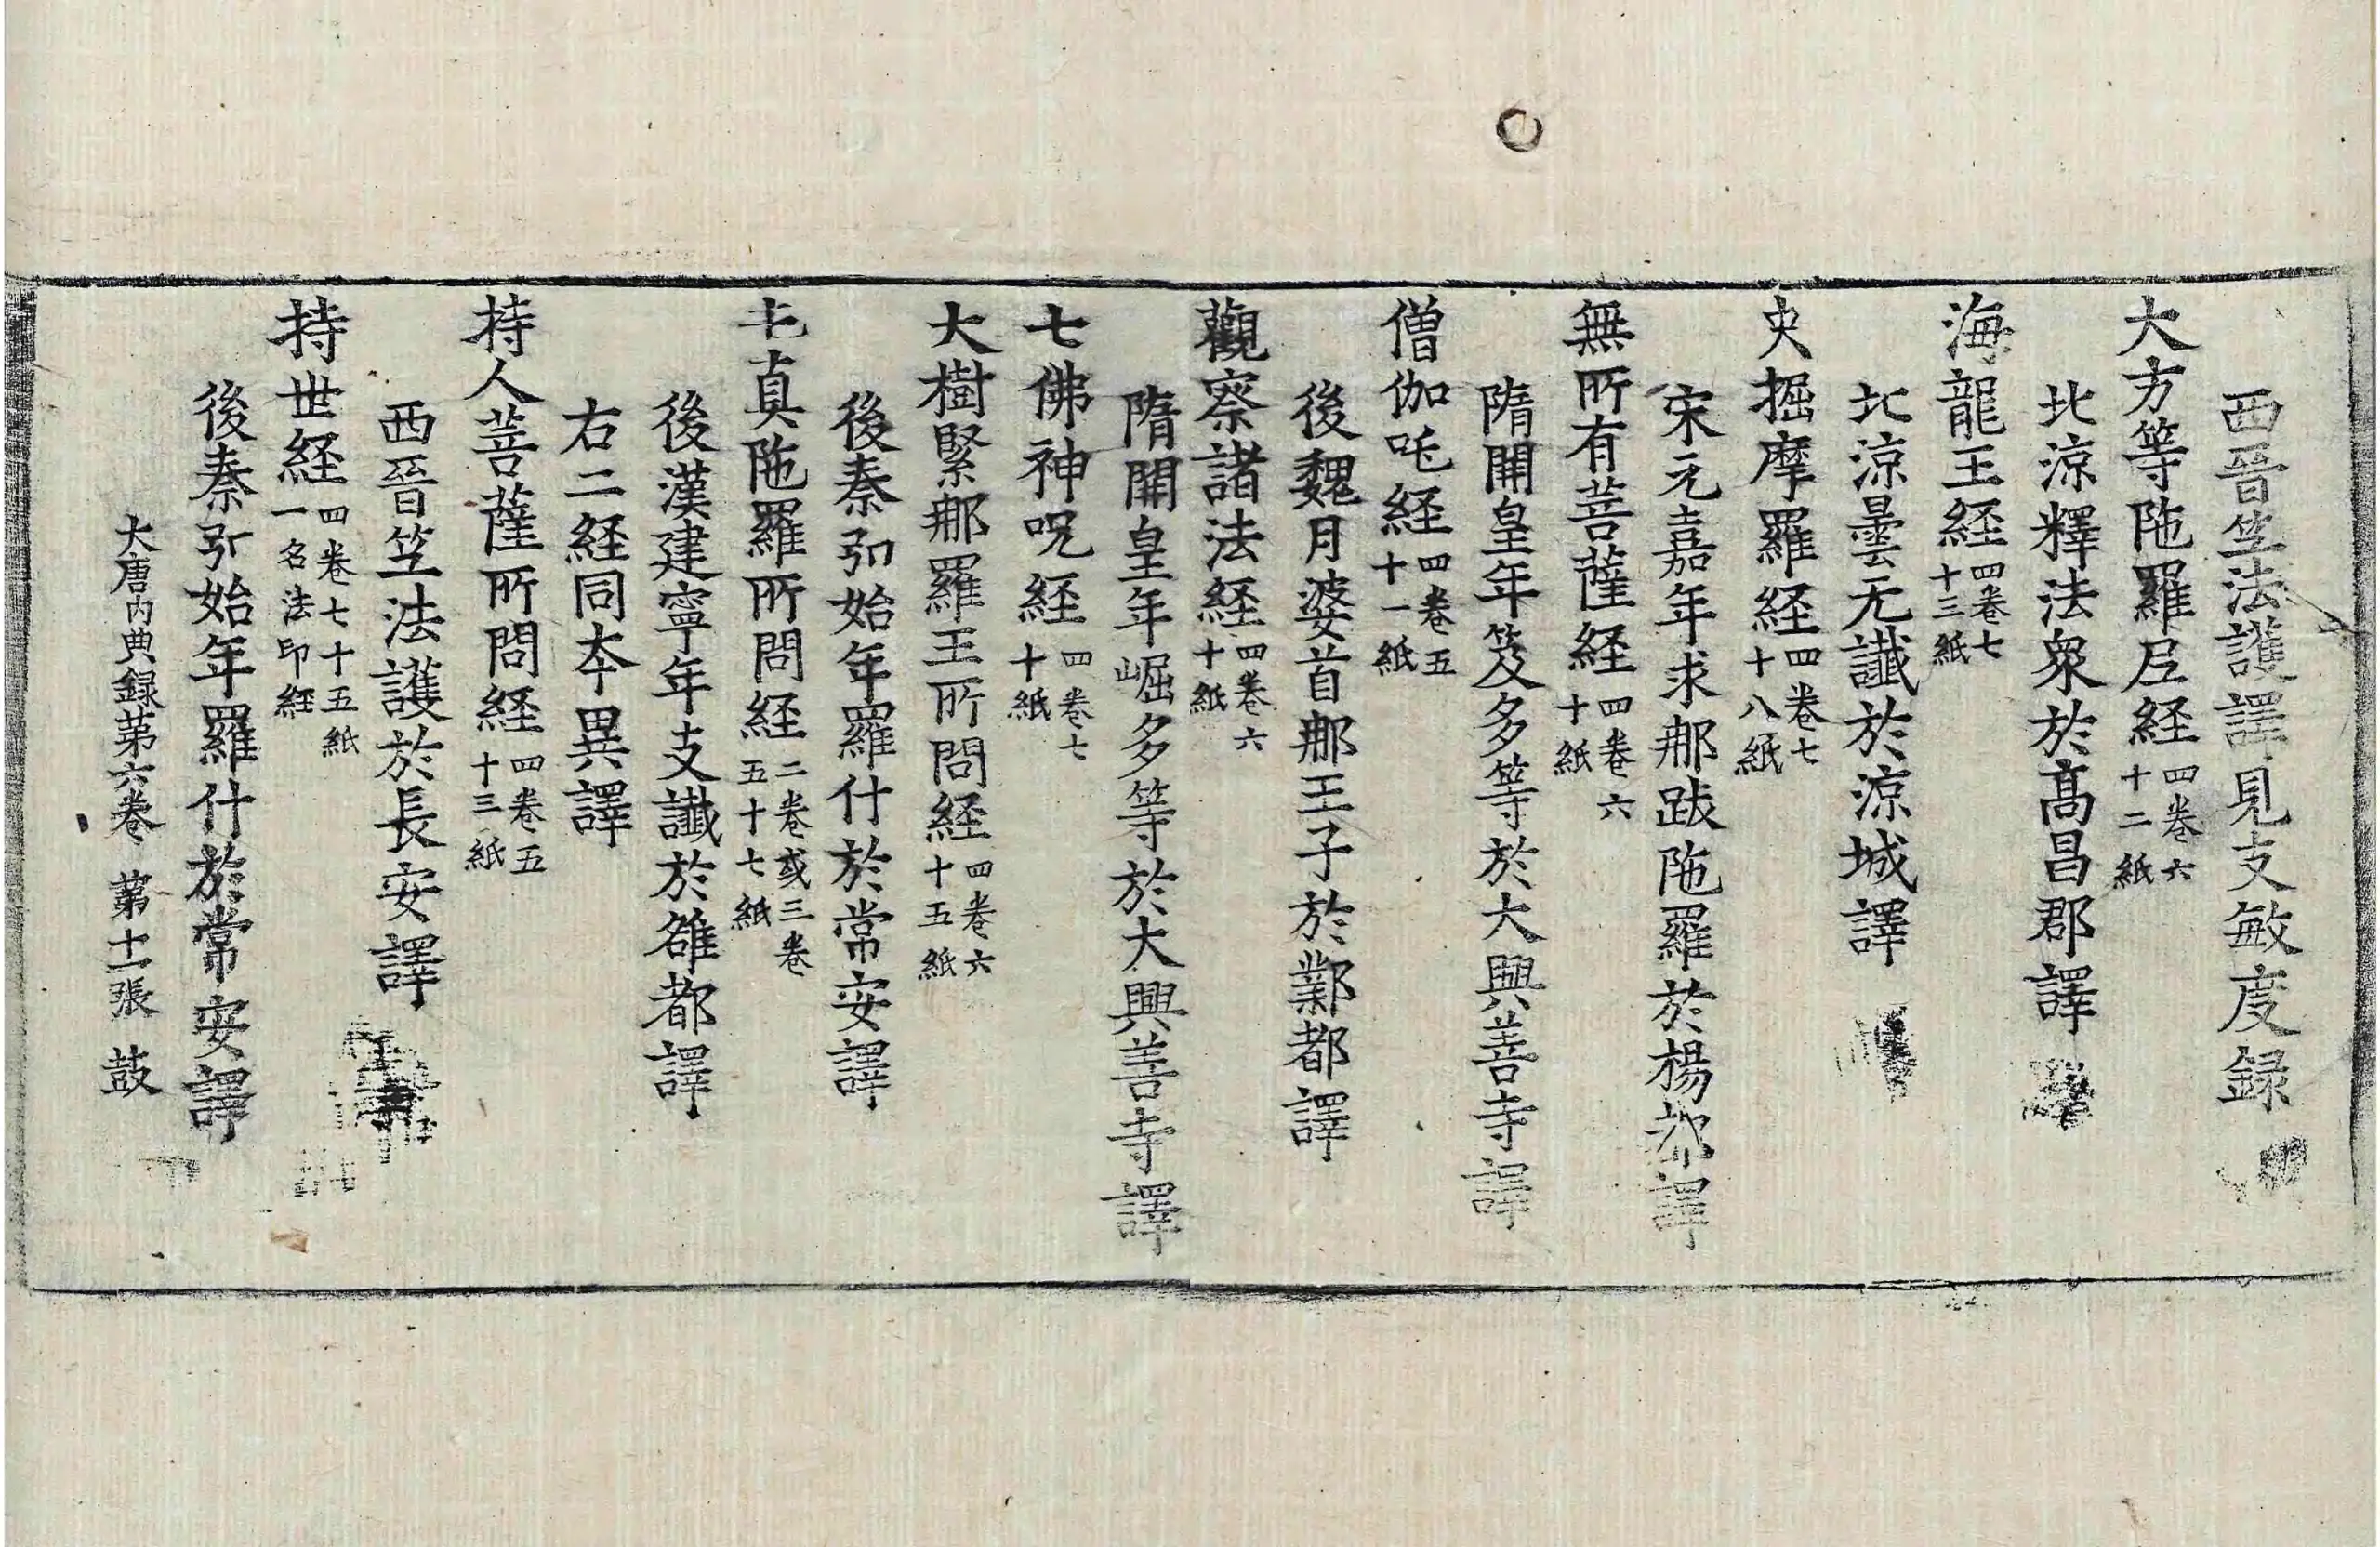 西晉笁法護譯見支敏度録
大方等陁羅尼経四卷六十二紙
北涼釋法衆於髙昌郡譯
海龍王経四卷七十三紙
北涼曇无讖於涼城譯
央掘摩羅経四卷七十八紙
宋元嘉年求那跋陁羅於楊都譯
無所有菩薩経四卷六十紙
隋開皇年笈多等於大興善寺譯
僧伽吒経四卷五十一紙
後魏月婆首那王子於鄴都譯
觀察諸法経四卷六十紙
隋開皇年崛多等於大興善寺譯
七佛神呪経四卷七十紙
大樹緊那羅王所問経四卷六十五紙
後秦弘始年羅什於常安譯
真陁羅所問経二卷或三卷五十七紙
後漢建寧年支讖於雒都譯
右二経同本異譯
持人菩薩所問経四卷五十三紙
西晉笁法護於長安譯
持世経四卷七十五紙一名法印経
後秦弘始年羅什於常安譯
大唐內典録第六卷 第十一張 鼓